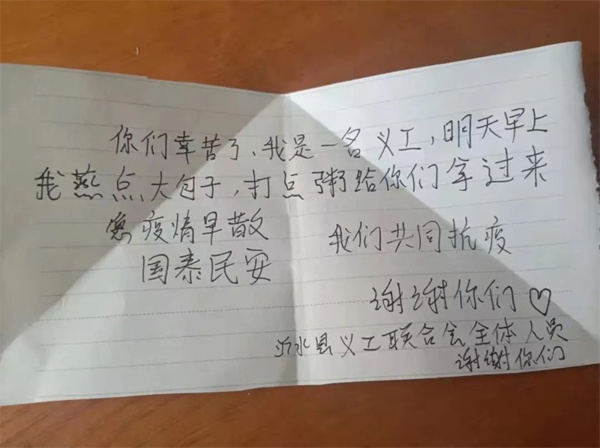 你们辛苦了、我是一名义工，明天早上
我蒸点大包子，打点粥给你们拿过来
愿疫情早散 我们共同抗疫
国泰民安
谢谢你们♡
沂水县义工联合会全体人员
谢谢你们